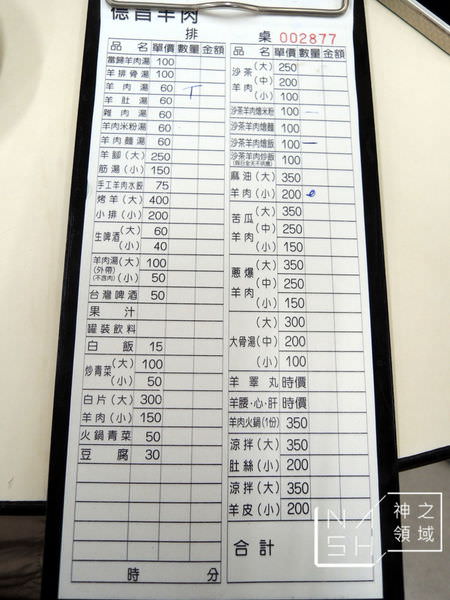 德昌羊肉
排 桌 002877
品名 單價 數量 金額
當歸羊肉湯 100
羊排骨湯 100
羊肉湯 60
羊肚湯 60
雜肉湯 60
羊肉米粉湯 60
羊肉麵湯 60
羊腳(大) 250
筋湯(小) 150
手工羊肉水餃 75
烤羊(大) 400
小排(小) 200
生啤酒(大) 60
(小) 40
羊肉湯(大) 100
(外帶)
(不含肉)(小) 50
台灣啤酒 50
果汁
罐裝飲料
白飯 15
炒青菜(大) 100
(小) 50
白片(大) 300
羊肉(小) 150
火鍋青菜 50
豆腐 30
時 分
品名 單價 數量 金額
沙茶(大) 250
羊肉(中) 200
(小) 100
沙茶羊肉燴米粉 100
沙茶羊肉燴麵 100
沙茶羊肉燴飯 100
沙茶羊肉炒飯 100
麻油(大) 350
羊肉(小) 200
苦瓜(大) 350
羊肉(中) 250
(小) 150
蔥爆(大) 350
羊肉(中) 250
(小) 150
(大) 300
大骨湯(中) 200
(小) 100
羊睪丸 時價
羊腰·心·肝 時價
羊肉火鍋(1份) 350
涼拌(大) 350
肚絲(小) 200
涼拌(大) 350
羊皮(小) 200
合計
NASH 神之領域